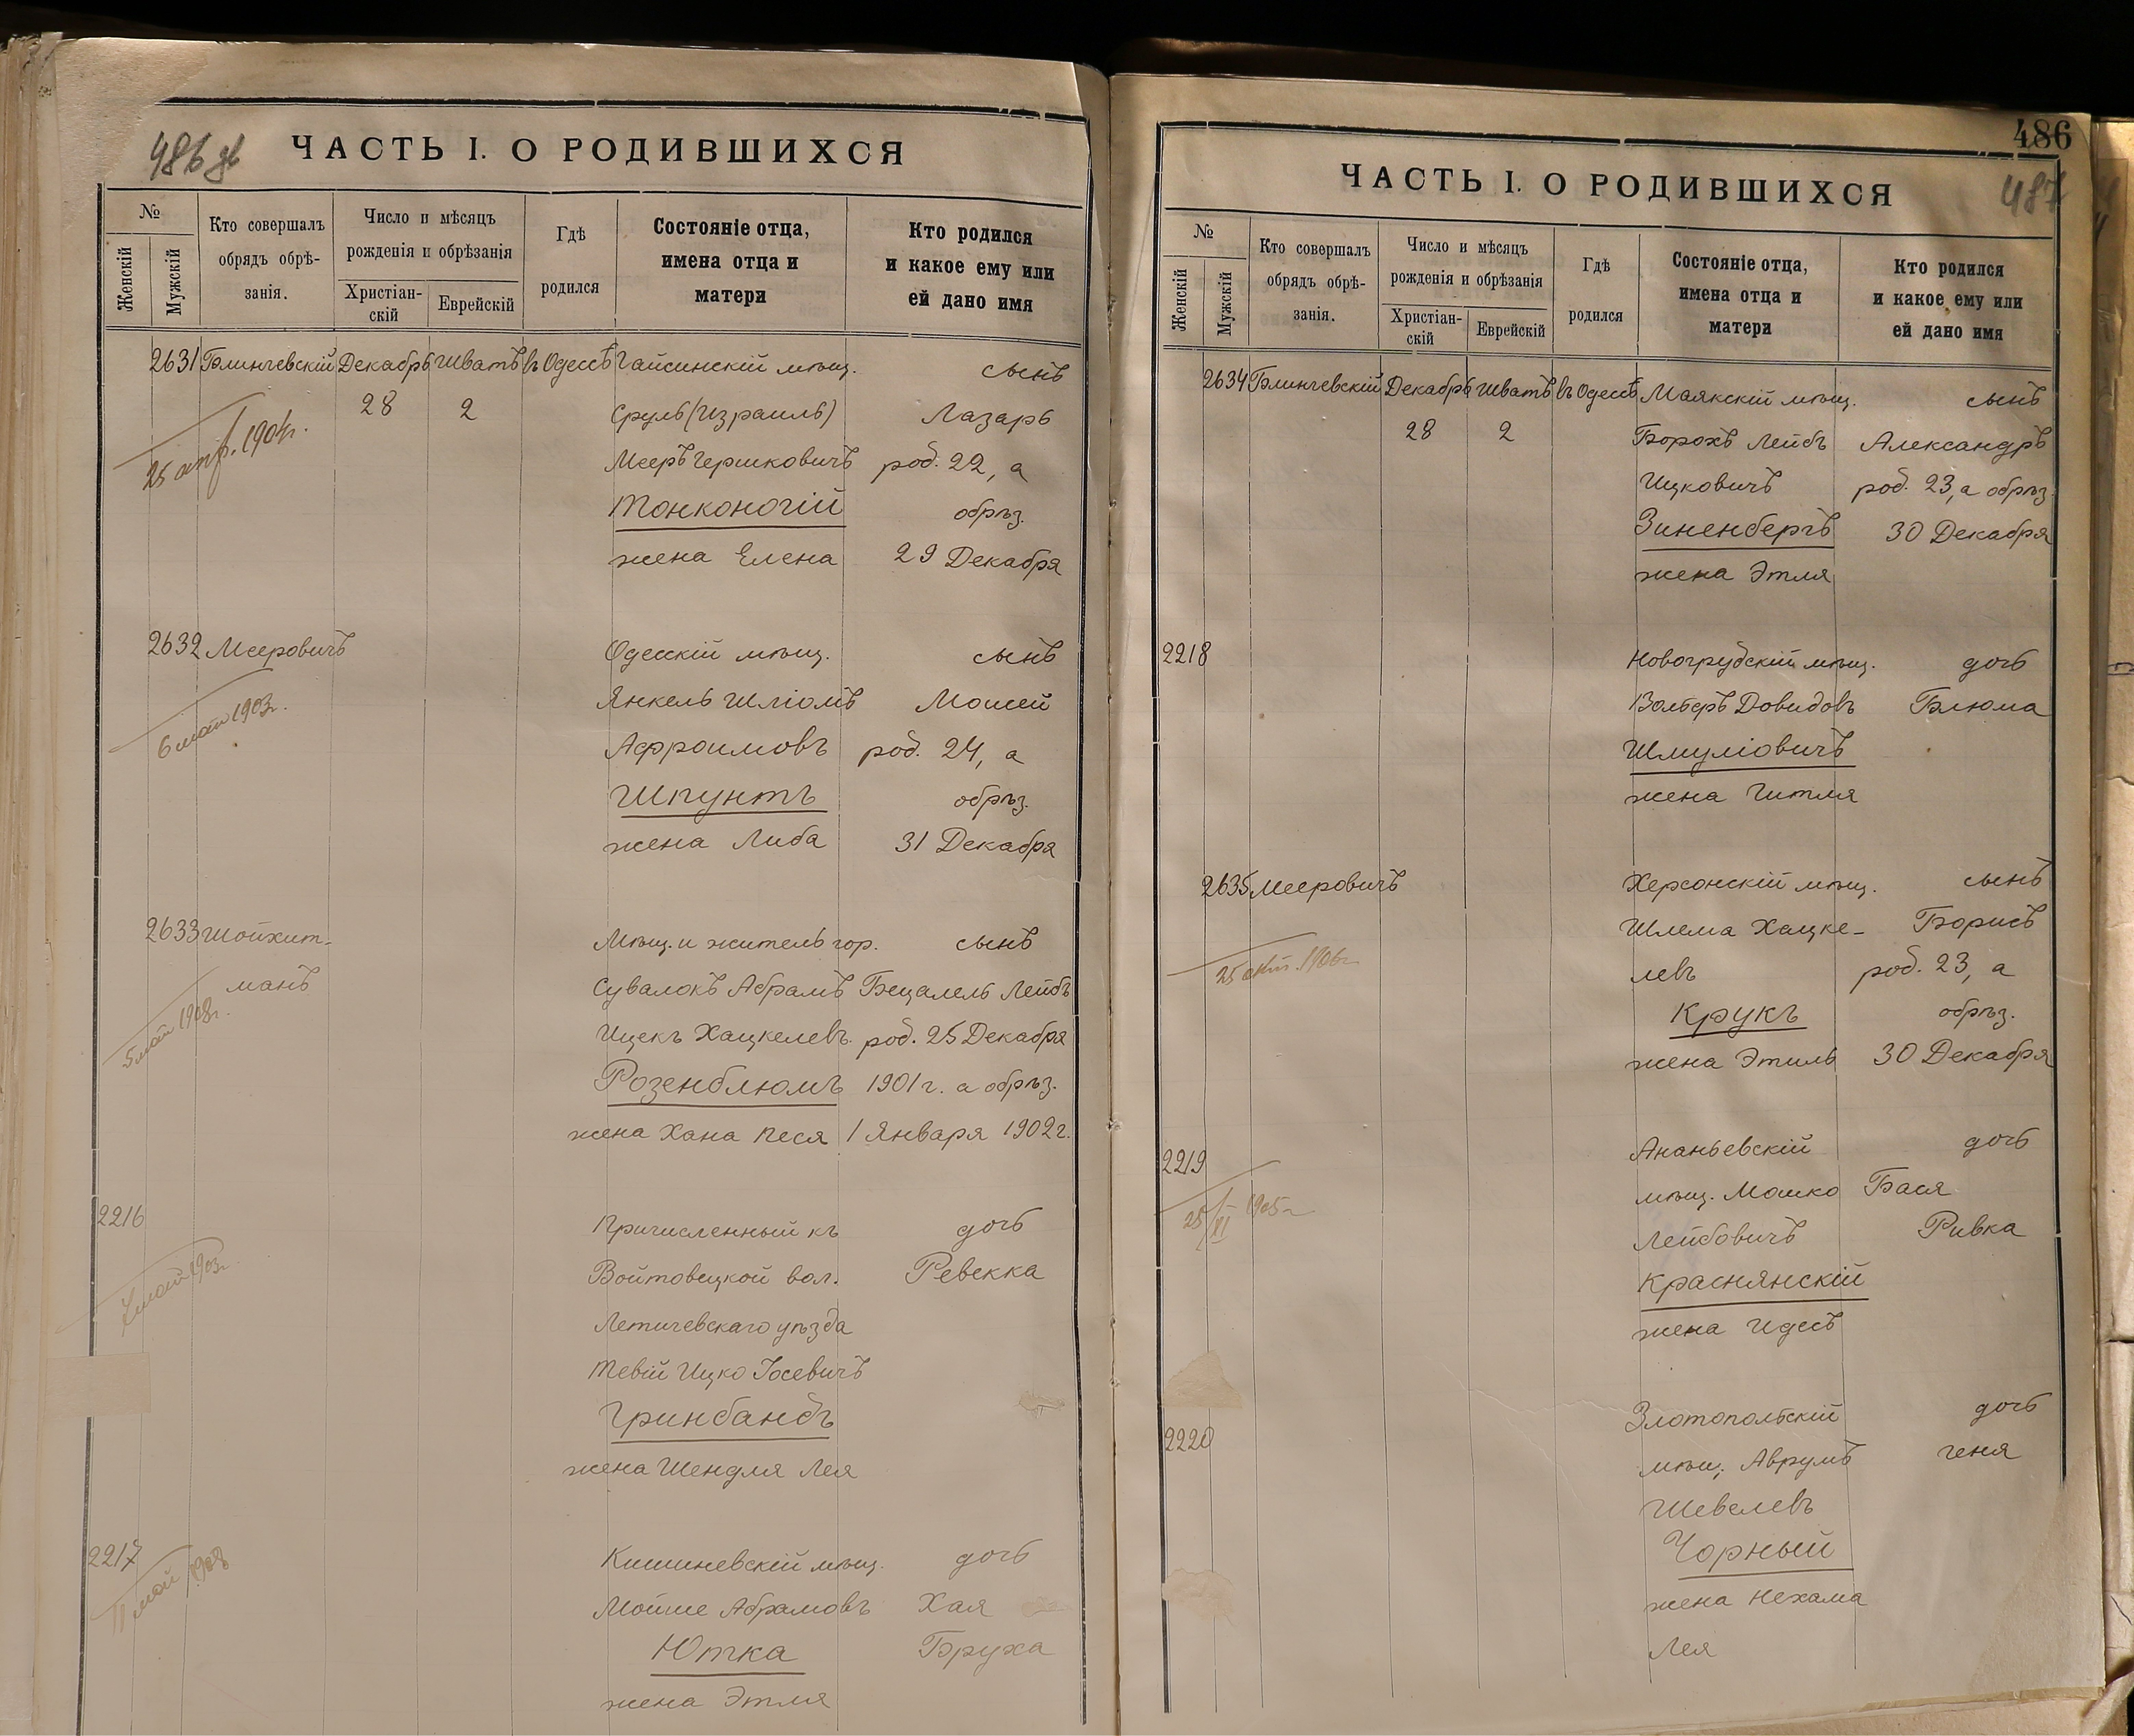 486 об
ЧАСТЬ I. О РОДИВШИХСЯ
№
Женскій
Мужскій
Кто совершалъ
обрядъ обрѣ-
занія.
Число и мѣсяцъ
рожденія и обрѣзанія
Христіан-
скій
Еврейскій
Гдѣ
родился
Состояніе отца,
имена отца и
матери
Кто родился
и какое ему или
ей дано имя
2631 Блинчевскій Декабрь Шватъ въ Одессѣ Гайсинскій мѣщ. сынъ
28 2 Сруль (Израиль) Лазарь
25 апр. 1904г. Мееръ Гершковичъ род. 22, а
Тонконогій обрѣз.
жена Елена 29 Декабря
2632 Мееровичъ Одесскій мѣщ. сынъ
6 1903г. Янкель Шліомъ Мошей
Афроимовъ род. 24, а
Шпунтъ обрѣз.
жена Либа 31 Декабря
2633 Шойхет- Мѣщ. и житель гор. сынъ
манъ Сувалокъ Абрамъ Бецалель Лейбъ
5 май 1908г. Ицекъ Хацкелевъ род. 25 Декабря
Розенблюмъ 1901 г. а обрѣз.
жена Хана Песя 1 Января 1902 г.
2216 Причисленный къ дочь
Войтовецкой вол. Ревекка
май 1903г. Летичевскаго уѣзда
Тевій Ицко Іосевичъ
Гринбандъ
жена Шендля Лея
2217 Кишиневскій мѣщ. дочь
11 май 1908 Мойше Абрамовъ Хая
Ютка Бруха
жена Этля
486
487
ЧАСТЬ I. О РОДИВШИХСЯ
№
Женскій
Мужскій
Кто совершалъ
обрядъ обрѣ-
занія.
Число и мѣсяцъ
рожденія и обрѣзанія
Христіан-
скій
Еврейскій
Гдѣ
родился
Состояніе отца,
имена отца и
матери
Кто родился
и какое ему или
ей дано имя
2634 Блинчевскій Декабрь Шватъ въ Одессѣ Маякскій мѣщ. сынъ
28 2 Борохъ Лейбъ Александръ
Ицковичъ род. 23, а обрѣз.
Зиненбергъ 30 Декабря
жена Этля
2218 Новогрубскій мѣщ. дочь
Волберъ Довидовъ Блюма
Шмуліовичъ
жена Гитля
2635 Мееровичъ Херсонскій мѣщ. сынъ
Шлема Хацке- Борисъ
25 окт. 1906г левъ род. 23, а
Крукъ обрѣз.
жена Этиль 30 Декабря
2219 Ананьевскій дочь
мѣщ. Мошко Бася
25/VI 1905г Лейбовичъ Ривка
Краснянскій
жена Идесъ
2220 Злотопольскій дочь
мѣщ. Аврумъ Геня
Шевелевъ
Чорный
жена Нехама
Лея